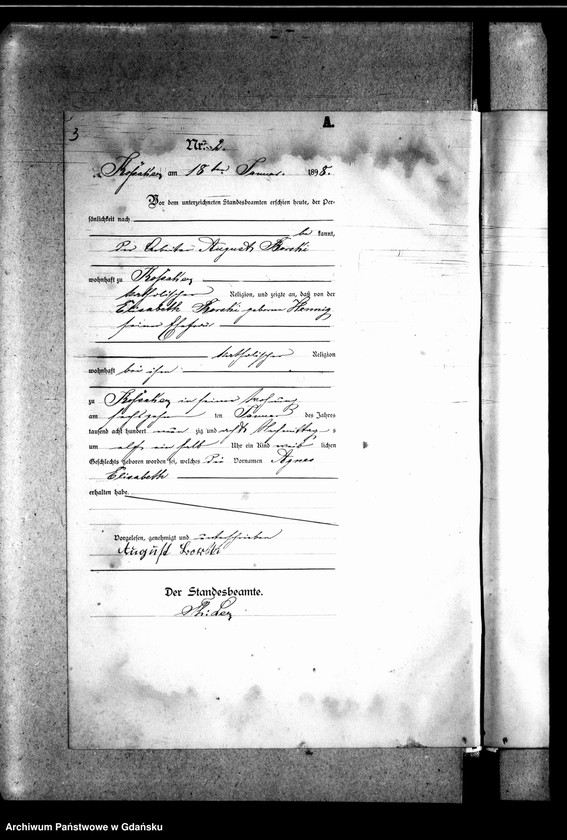 3
A.
Nr. 2.
Kossakau am 18ten Januar 1898.
Vor dem unterzeichneten Standesbeamten erschien heute, der Per-
sönlichkeit nach
be kannt,
der Arbeiter August
wohnhaft zu Kossakau
katholischer Religion, und zeigte an, daß von der
Elisabeth geborene Hennig
seiner Ehefrau
katholischer Religion
wohnhaft bei ihm
zu Kossakau in seiner Wohnung
am sechszehn ten Januar des Jahres
tausend acht hundert neun zig und acht Nachmittags
um elf ein halb Uhr ein Kind weib lichen
Geschlechts geboren worden sei, welches die Vornamen Agnes
Elisabeth
erhalten habe.
Vorgelesen, genehmigt und unterschrieben
August
Der Standesbeamte.
Archiwum Państwowe w Gdańsku